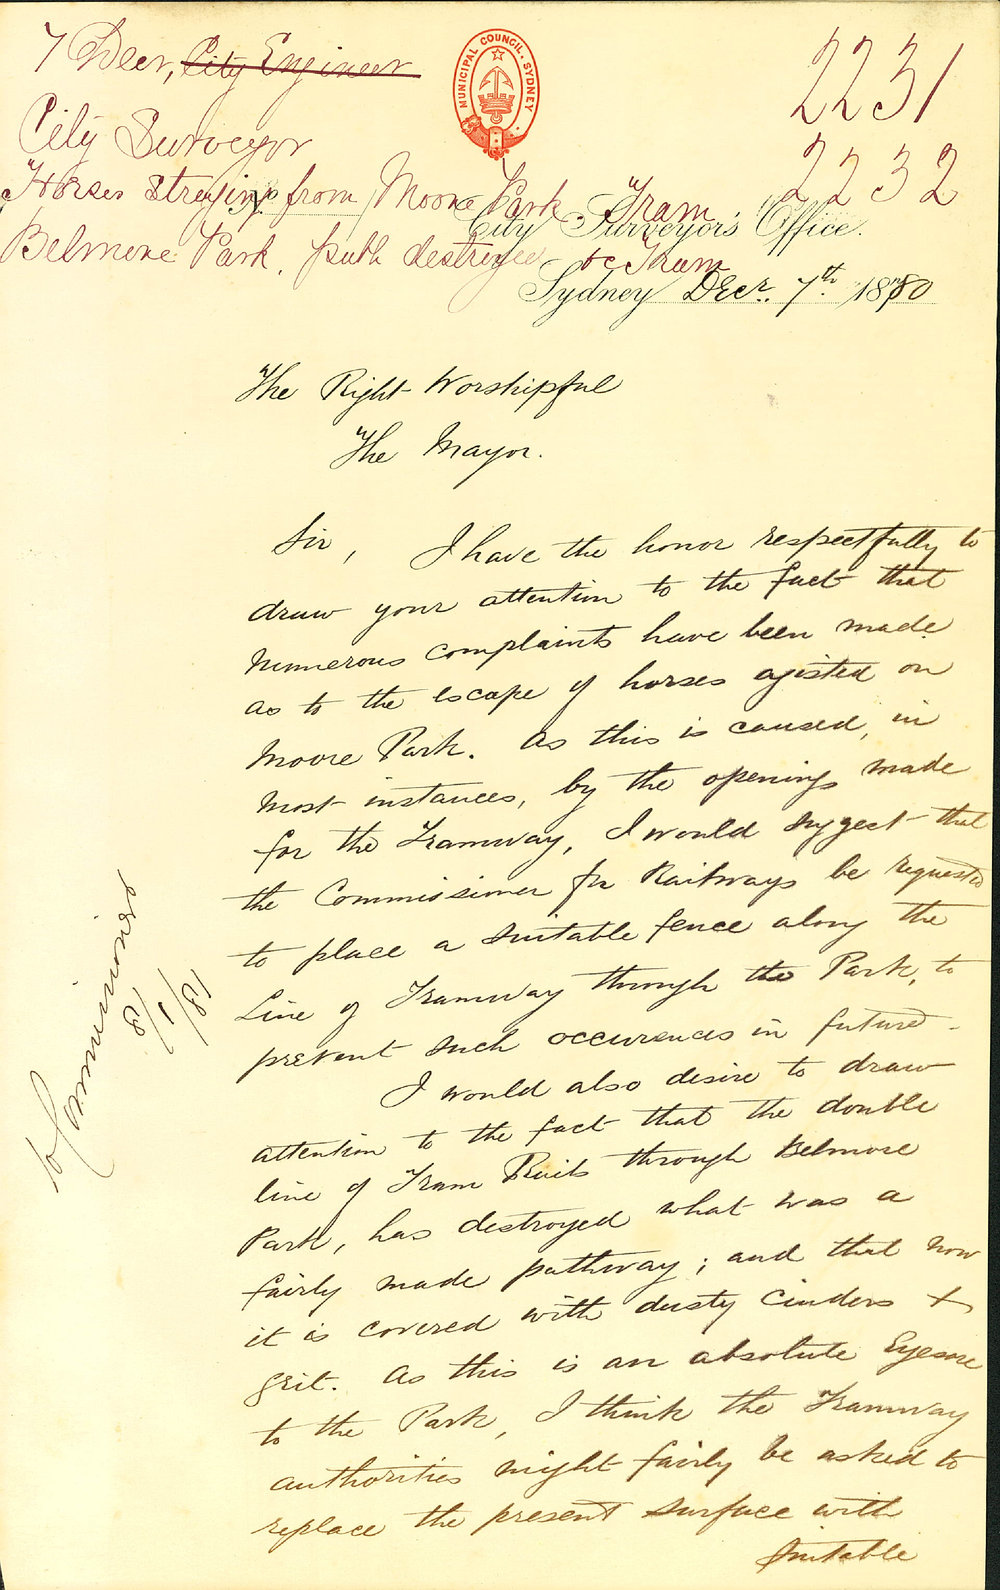 7 Decr, City Engineer
City Surveyor
Horses straying from Moore Park Tram.
Belmore Park, path destroyed by Tram
2231
2232
MUNICIPAL COUNCIL. SYDNEY
City Surveyor's Office.
Sydney Decr. 7th. 1880
The Right Worshipful
The Mayor.
Sir, I have the honor respectfully to
draw your attention to the fact that
numerous complaints have been made
as to the escape of horses agisted on
Moore Park. As this is caused, in
most instances, by the openings made
for the Tramway, I would suggest that
the Commissioner for Railways be requested
to place a suitable fence along the
Line of Tramway through the Park, to
prevent such occurences in future.
I would also desire to draw
attention to the fact that the double
line of Tram Rails through Belmore
Park, has destroyed what was a
fairly made pathway; and that now
it is covered with dusty Cinders +
grit. As this is an absolute Eyesore
to the Park, I think the Tramway
authorities might fairly be asked to
replace the present surface with
suitable
to Commissioner